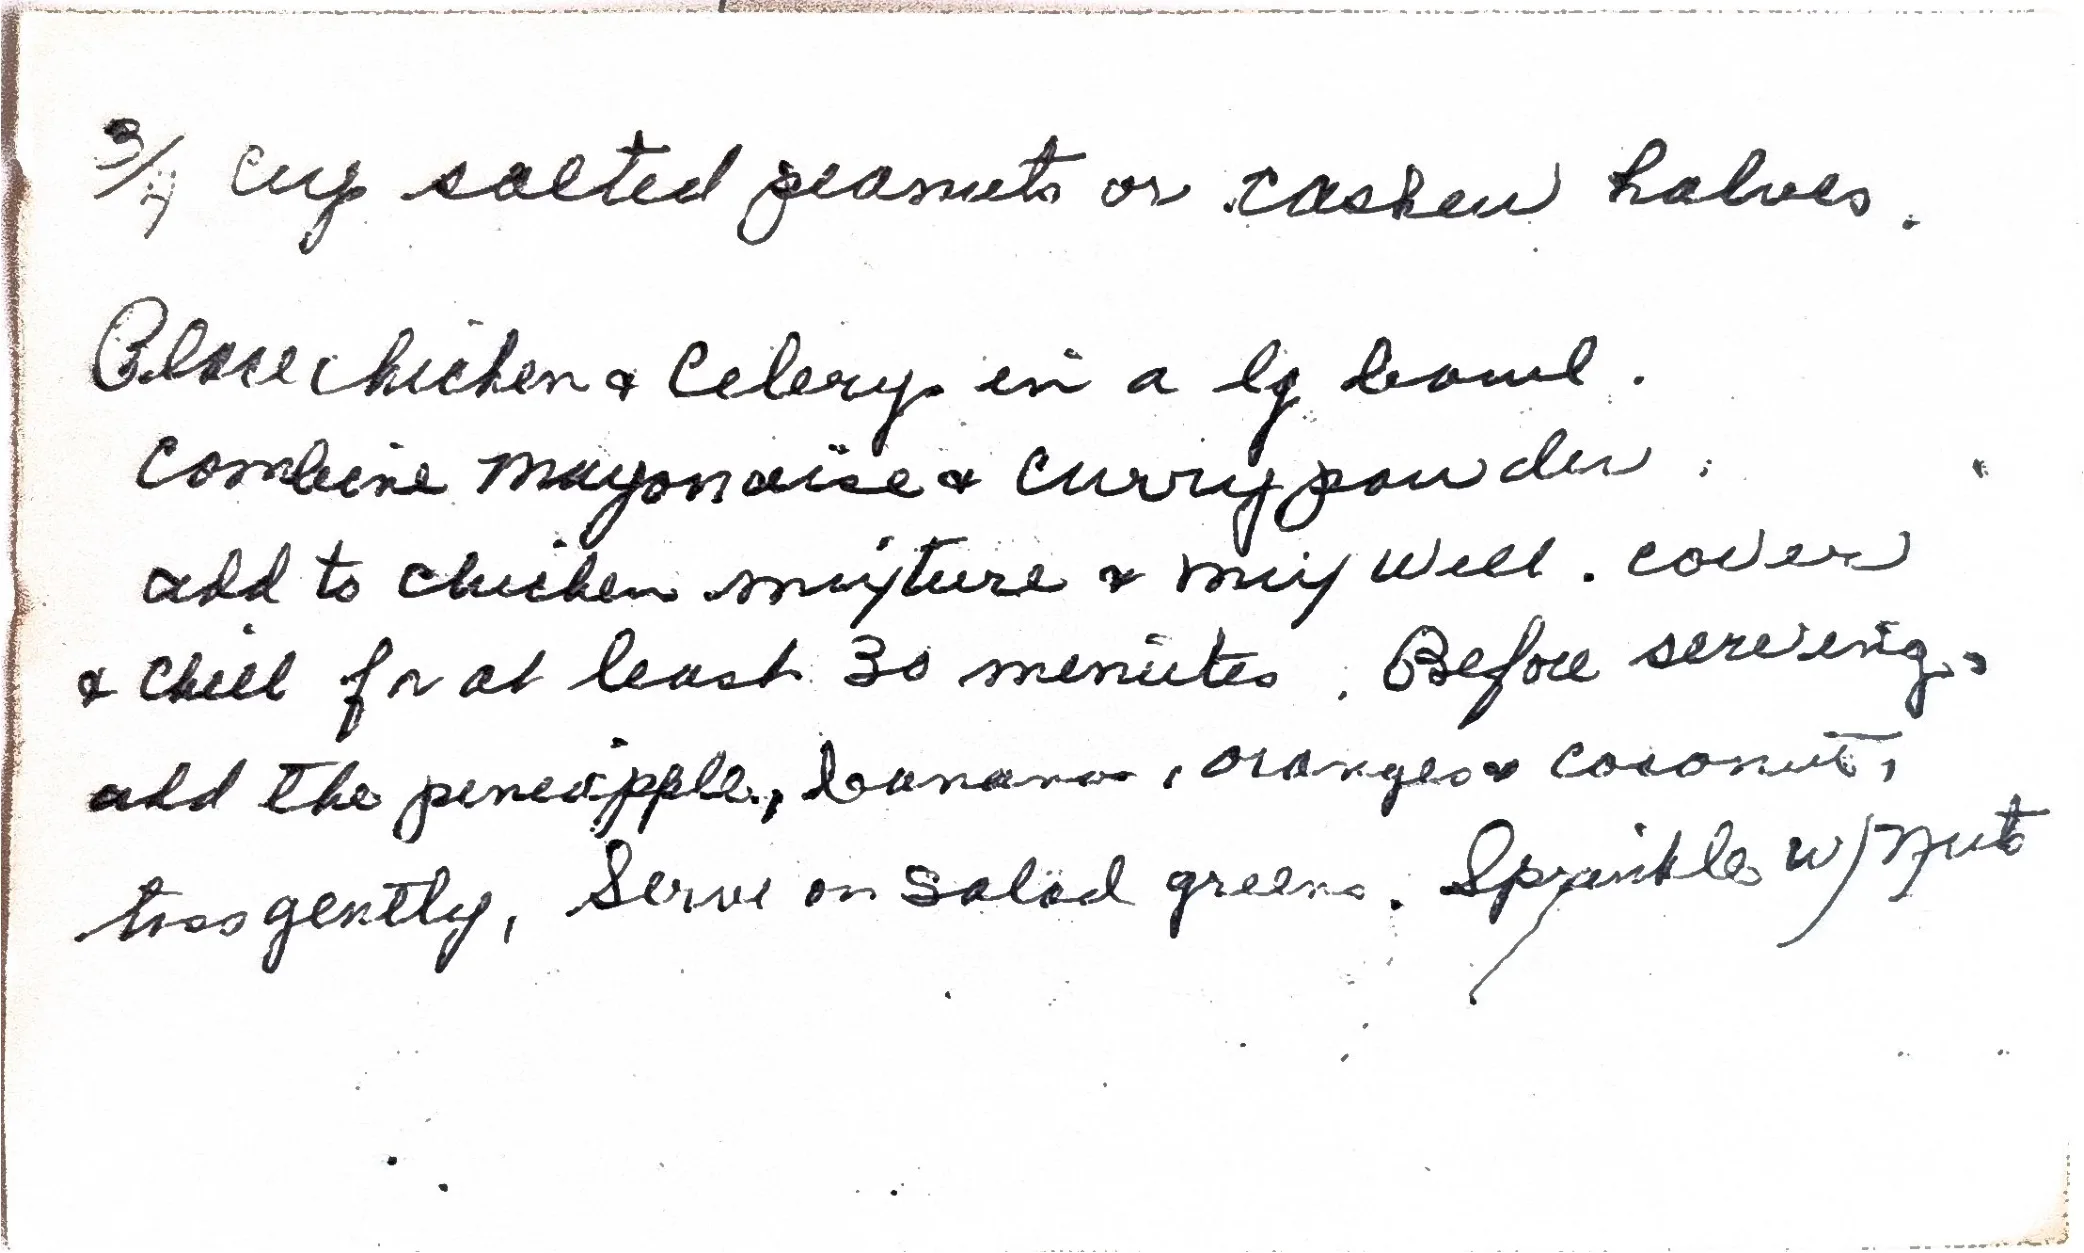 3/4 cup salted peanuts or cashew halves.
Place chicken & Celery in a lg bowl.
Combine Mayonaise & Curry powder.
add to chicken mixture & mix well. cover
& chill for at least 30 minutes. Before serving,
add the pineapple, bananas, oranges & coconut,
toss gently, Serve on Salad greens. Sprinkle w/ nuts